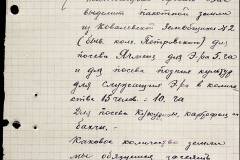 выделить пахотной земли
из Ковалевской Земобщины №2
(быв. кол. Петровского) для
посева Ячменя для Э-ра 5. га
и для посева поздних культур
для служащих Э-ра в количе
стве 15 челов. – 10. га
Для посева Кукурузы, картофеля и
бахчи. –
Каковое количество земли
мы обязуемся засеять